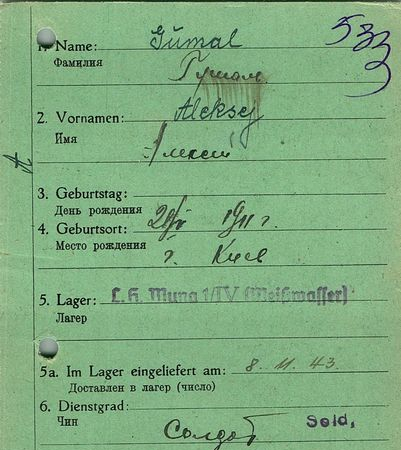 533
1. Name: Gumal
Фамилия
Гумаль
2. Vornamen: Aleksej
Имя
Алексей
3. Geburtstag:
День рождения 1911 г.
4. Geburtsort:
Место рождения г. Киев
5. Lager: L. H. Muna 1/IV (Weißwasser)
Лагерь
5a. Im Lager eingeliefert am: 8. 11. 43.
Доставлен в лагерь (число)
6. Dienstgrad: Sold.
Чин Солдат